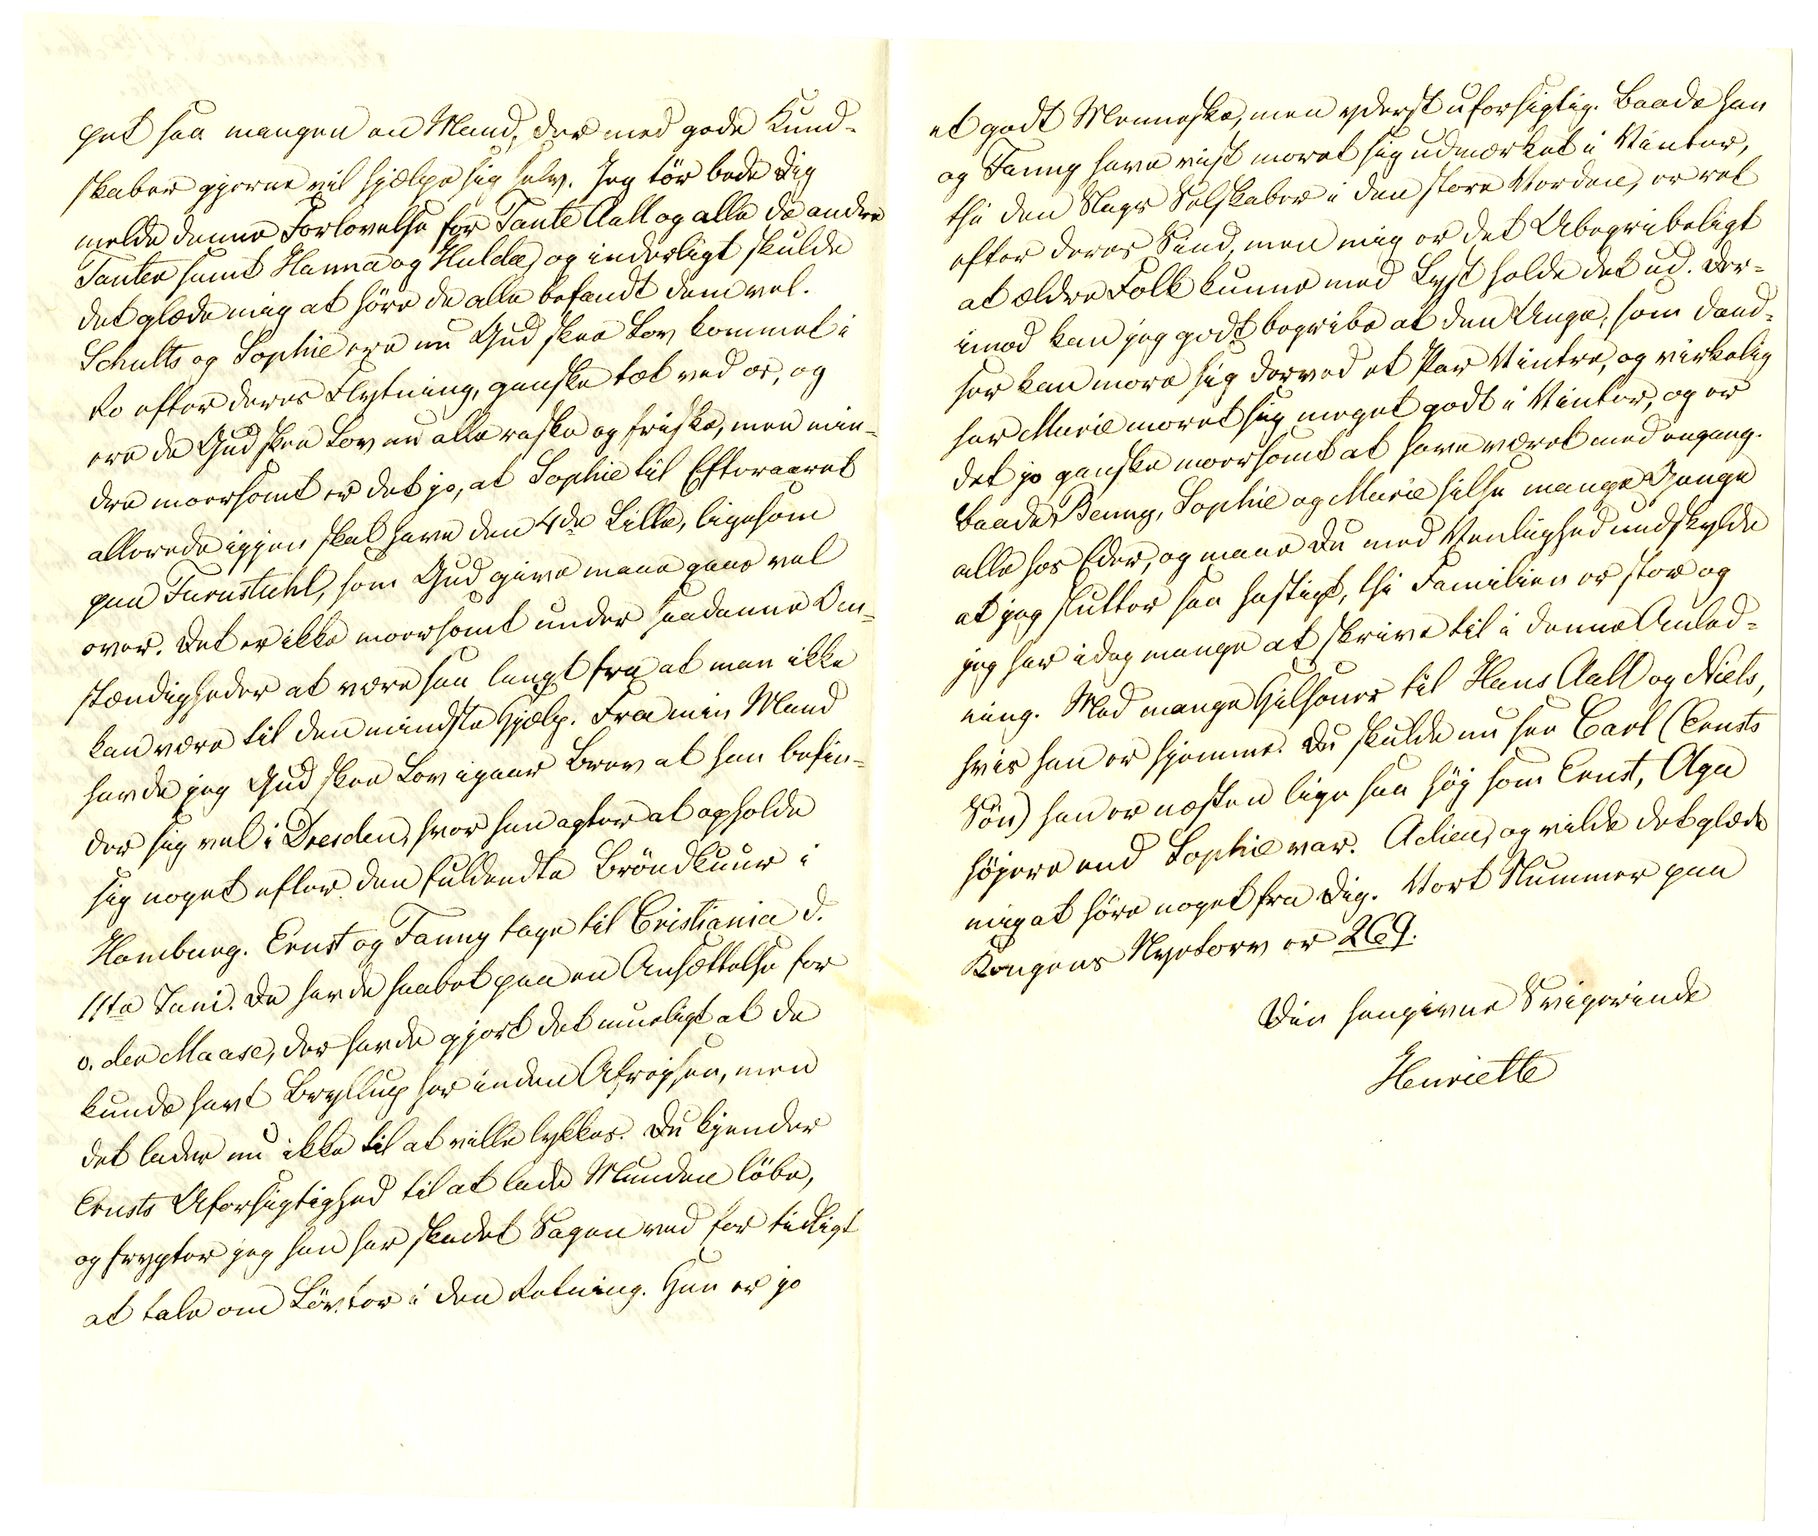 get saa mangen en Mand, der med gode Kund-
skaber gjerne vil hjælpe sig selv. Jeg tör bede Dig
melde denne Forlovelse for Tante Aall og alle de andre
Tanter samt Hanna og Hulda, og inderligt skulde
det glæde mig at höre de alle befandt dem vel.
Schults og Sophie ere nu Gud skee Lov kommet i
Ro efter deres Flytning, ganske tæt ved os, og
ere de Gud skee Lov nu alle raske og friske, men min-
dre moersomt er det jo, at Sophie til Efteraaret
allerede igjen skal have den 4de Lille, ligesom
paa Turustuhl, som Gud give maae gaae vel
over. Det er ikke moersomt under saadanne Om-
stændigheder at være saa langt fra at man ikke
kan være til den mindste Hjælp. Fra min Mand
havde jeg Gud skee Lov igaar Brev at han befin-
der sig vel i Dresden, hvor han agter at opholde
sig noget efter den fuldendte Bröndkuur i
Homburg. Ernst og Fanny tage til Cristiania d.
11te Juni. De havde haabet paa en Ansættelse for
v. der Maase, der havde gjort det mueligt at de
kunde havt Bryllup her inden Afrejsen, men
det lader nu ikke til at ville lykkes. Du kjender
Ernsts Uforsigtighed til at lade Munden löbe,
og frygter jeg han har skadet Sagen ved for tidligt
at tale om Löyter i den Retning. Han er jo
et godt Menneske, men yderst uforsigtig. Baade han
og Fanny have vist moret sig udmærket i Vinter,
thi den Slags Selskaber i den store Verden, er ret
efter deres Sind, men mig er det Ubegribeligt
at ældre Folk kunne med Lyst holde det ud. Der-
imod kan jeg godt begribe at den Unge, som dand-
ser kan more sig derved et Par Vintre, og virkelig
har Marie moret sig meget godt i Vinter, og er
det jo ganske moersomt at have været med engang.
Baade Benny, Sophie og Marie hilse mange Gange
alle hos Eder, og maae Du med Venlighed undskylde
at jeg slutter saa hastigt, thi Familien er stor og
jeg har idag mange at skrive til i denne Anled-
ning. Med mange Hilsener til Hans Aall og Niels,
hvis han er hjemme. Du skulde nu see Carl (Ernsts
Sön) han er næsten lige saa höj som Ernst, Aga
höjere end Sophie var. Adieu, og vilde det glæde
mig at höre noget fra Dig. Vort Nummer paa
Kongens Nyetorv er 269.
Din hengivne Svigerinde
Henriette